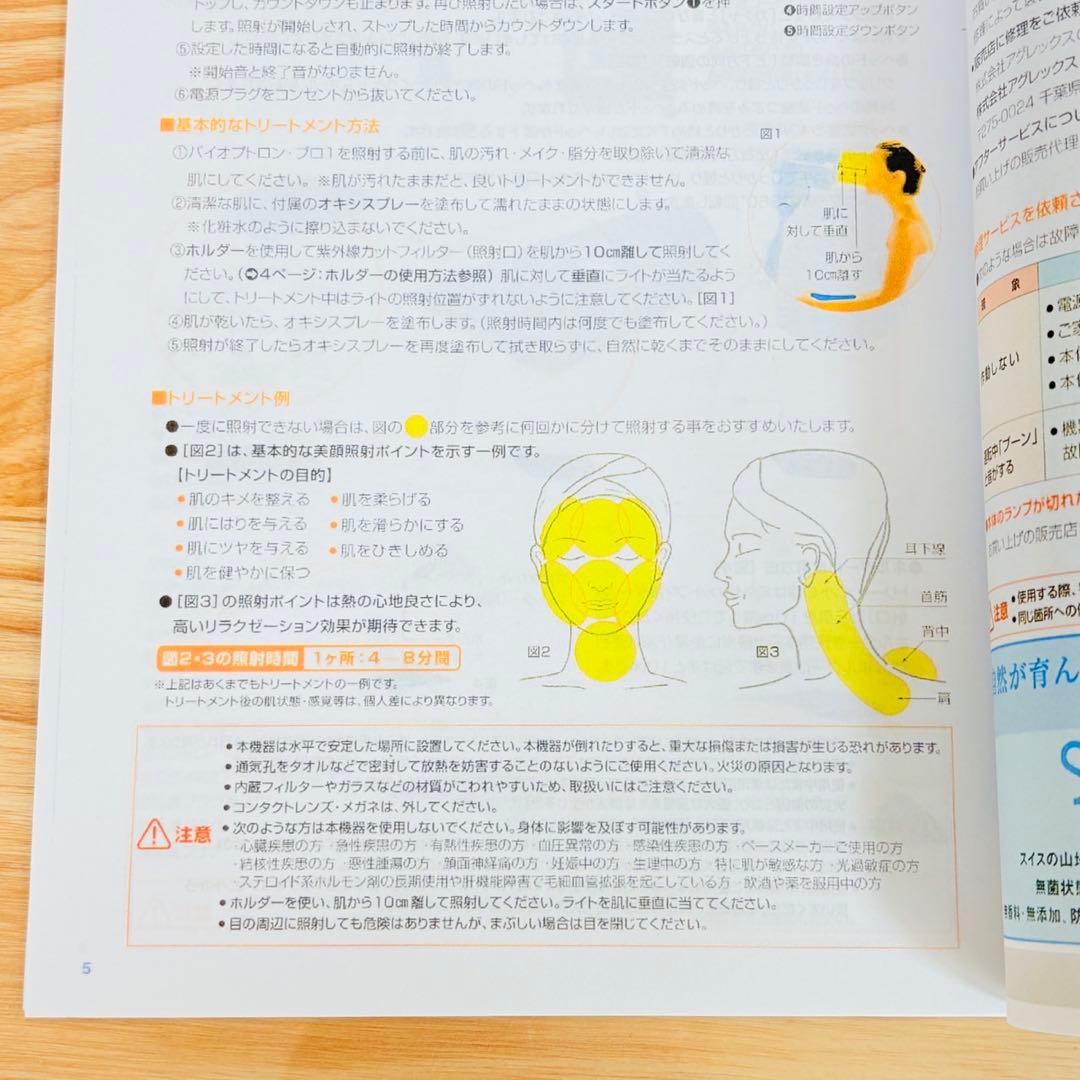 トップし、カウントダウンも止まります。再び照射したい場合は、スタートボタン❶を押
します。照射が開始しされ、ストップした時間からカウントダウンします。
⑤設定した時間になると自動的に照射が終了します。
※開始音と終了音がなります。
⑥電源プラグをコンセントから抜いてください。
❹時間設定アップボタン
❺時間設定ダウンボタン
■基本的なトリートメント方法
①バイオプトロン・プロ1を照射する前に、肌の汚れ・メイク・脂分を取り除いて清潔な
肌にしてください。※肌が汚れたままだと、良いトリートメントができません。
②清潔な肌に、付属のオキシスプレーを塗布して濡れたままの状態にします。
※化粧水のように擦り込まないでください。
③ホルダーを使用して紫外線カットフィルター（照射口）を肌から10㎝離して照射してく
ださい。（➲4ページ：ホルダーの使用方法参照）肌に対して垂直にライトが当たるよう
にして、トリートメント中はライトの照射位置がずれないように注意してください。［図1］
④肌が乾いたら、オキシスプレーを塗布します。（照射時間内は何度でも塗布してください。）
⑤照射が終了したらオキシスプレーを再度塗布して拭き取らずに、自然に乾くまでそのままにしてください。
図1
肌に
対して垂直
肌から
10㎝離す
■トリートメント例
●一度に照射できない場合は、図の 部分を参考に何回かに分けて照射する事をおすすめいたします。
●［図2］は、基本的な美顔照射ポイントを示す一例です。
【トリートメントの目的】
●肌のキメを整える ●肌を柔らげる
●肌にはりを与える ●肌を滑らかにする
●肌にツヤを与える ●肌をひきしめる
●肌を健やかに保つ
●［図3］の照射ポイントは熱の心地良さにより、
高いリラクゼーション効果が期待できます。
図2・3の照射時間 1ヶ所：4―8分間
※上記はあくまでもトリートメントの一例です。
トリートメント後の肌状態・感覚等は、個人差により異なります。
図2
図3
耳下線
首筋
背中
肩
注意
●本機器は水平で安定した場所に設置してください。本機器が倒れたりすると、重大な損傷または損害が生じる恐れがあります。
●通気孔をタオルなどで密封して放熱を妨害することのないようにご使用ください。火災の原因となります。
●内蔵フィルターやガラスなどの材質がこわれやすいため、取扱いにはご注意ください。
●コンタクトレンズ・メガネは、外してください。
●次のような方は本機器を使用しないでください。身体に影響を及ぼす可能性があります。
・心臓疾患の方 ・急性疾患の方 ・有熱性疾患の方 ・血圧異常の方 ・感染性疾患の方 ・ペースメーカーご使用の方
・結核性疾患の方 ・悪性腫瘍の方 ・顔面神経痛の方 ・妊娠中の方 ・生理中の方 ・特に肌が敏感な方 ・光過敏症の方
・ステロイド系ホルモン剤の長期使用や肝機能障害で毛細血管拡張を起こしている方 ・飲酒や薬を服用中の方
●ホルダーを使い、肌から10㎝離して照射してください。ライトを肌に垂直に当ててください。
●目の周辺に照射しても危険はありませんが、まぶしい場合は目を閉じてください。
5
●販売店に修理をご依頼
株式会社アグレックスの
株式会社アグレックス
〒275-0024 千葉県
アフターサービスについ
お買い上げの販売代理
サービスを依頼さ
のような場合は故障
現象
作動しない
●電源
●ご家
●本体
●本体
運転中「ブーン」
と音がする
●機
故
本体のランプが切れた
お買い上げの販売店
注意
●使用する際、
●同じ箇所への
自然が育ん
スイスの山
無菌状
無香料・無添加、防